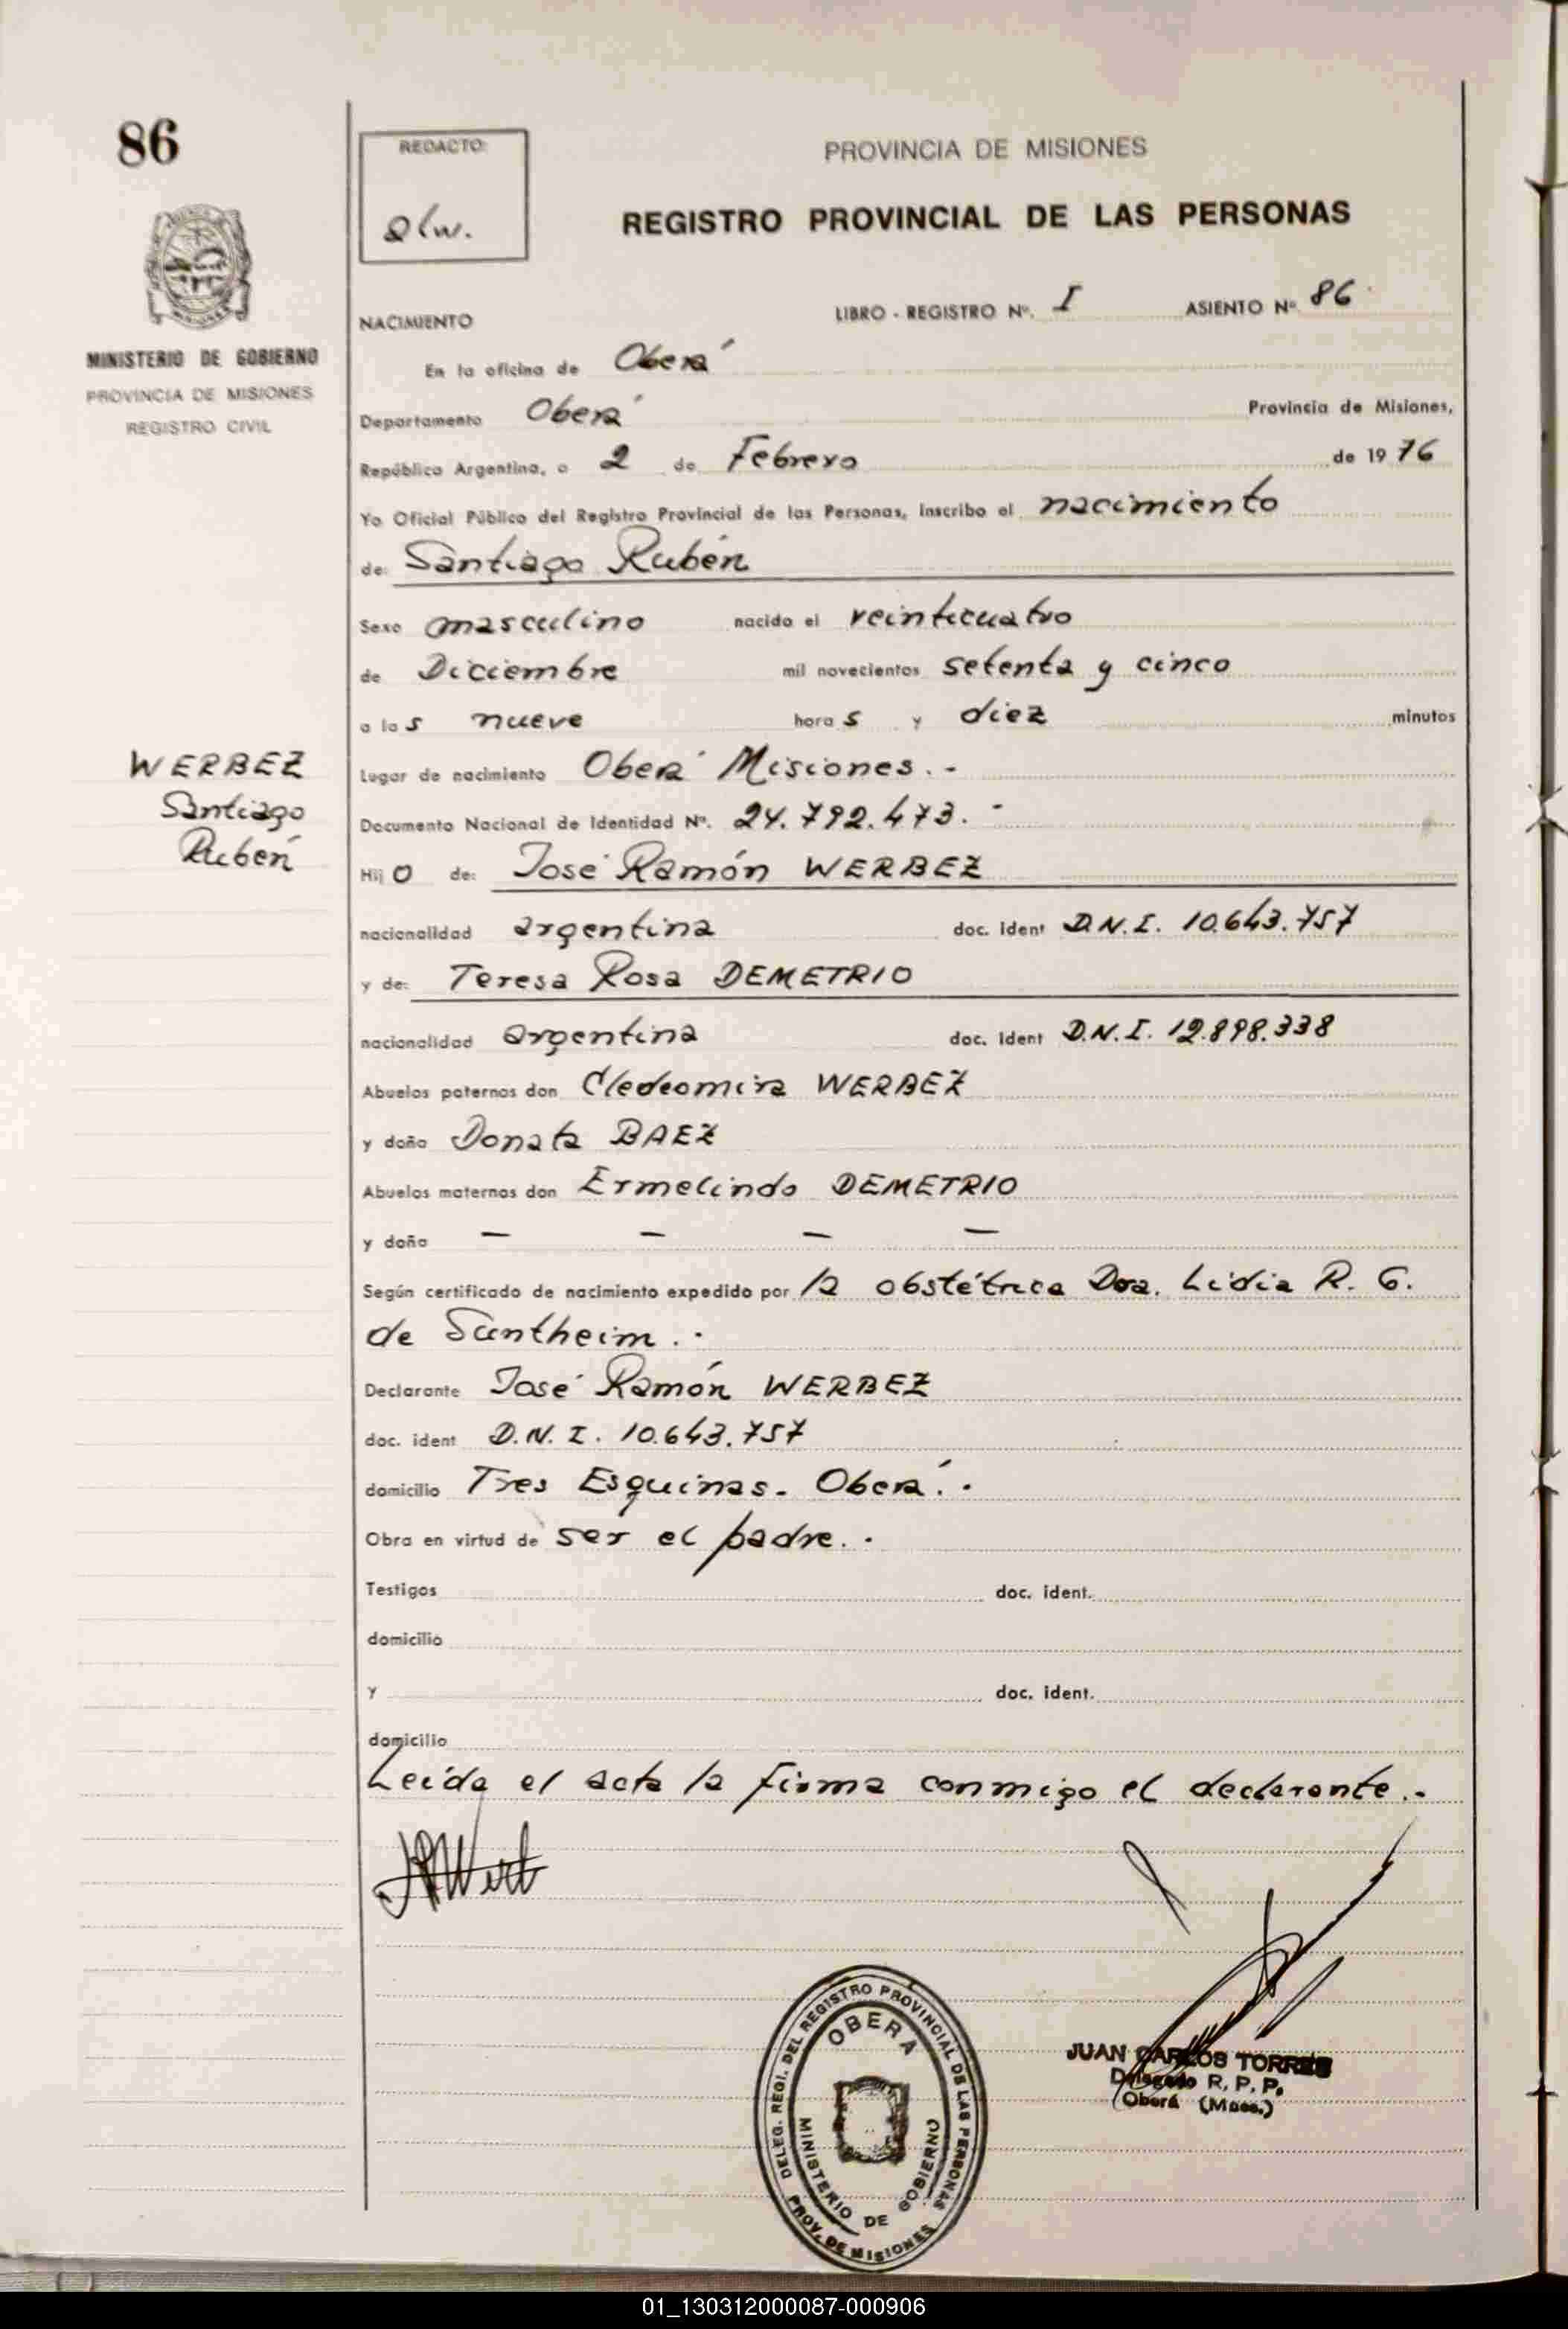 86
REDACTO:
PROVINCIA DE MISIONES
REGISTRO PROVINCIAL DE LAS PERSONAS
MINISTERIO DE GOBIERNO
PROVINCIA DE MISIONES
REGISTRO CIVIL
NACIMIENTO LIBRO - REGISTRO Nº. I ASIENTO Nº. 86
En la oficina de Oberá
Departamento Oberá Provincia de Misiones,
República Argentina, a 2 de Febrero de 1976
Yo Oficial Público del Registro Provincial de las Personas, inscribo el nacimiento
de: Santiago Rubén
Sexo masculino nacido el veinticuatro
de Diciembre mil novecientos setenta y cinco
a las nueve horas y diez minutos
WERBEZ
Santiago
Rubén
Lugar de nacimiento Oberá Misiones.-
Documento Nacional de Identidad Nº. 24.792.473.-
Hijo de: José Ramón WERBEZ
nacionalidad argentina doc. ident D.N.I. 10.643.757
y de: Teresa Rosa DEMETRIO
nacionalidad argentina doc. ident D.N.I. 12.898.338
Abuelos paternos don Cledeomira WERBEZ
y doña Donata BAEZ
Abuelos maternos don Ermelindo DEMETRIO
y doña — — — —
Según certificado de nacimiento expedido por la obstétrica Dra. Lidia R. G.
de Suntheim.-
Declarante José Ramón WERBEZ
doc. ident D.N.I. 10.643.757
domicilio Tres Esquinas. Oberá.-
Obra en virtud de ser el padre.-
Testigos doc. ident.
domicilio
y doc. ident.
domicilio
Leída el acta la firma conmigo el declarante.-
DELEG. REGI. DEL REGISTRO PROVINCIAL DE LAS PERSONAS
OBERA
MINISTERIO DE GOBIERNO
PROV. DE MISIONES
JUAN CARLOS TORRES
Delegado R. P. P.
Oberá (Mnes.)
01_130312000087-000906